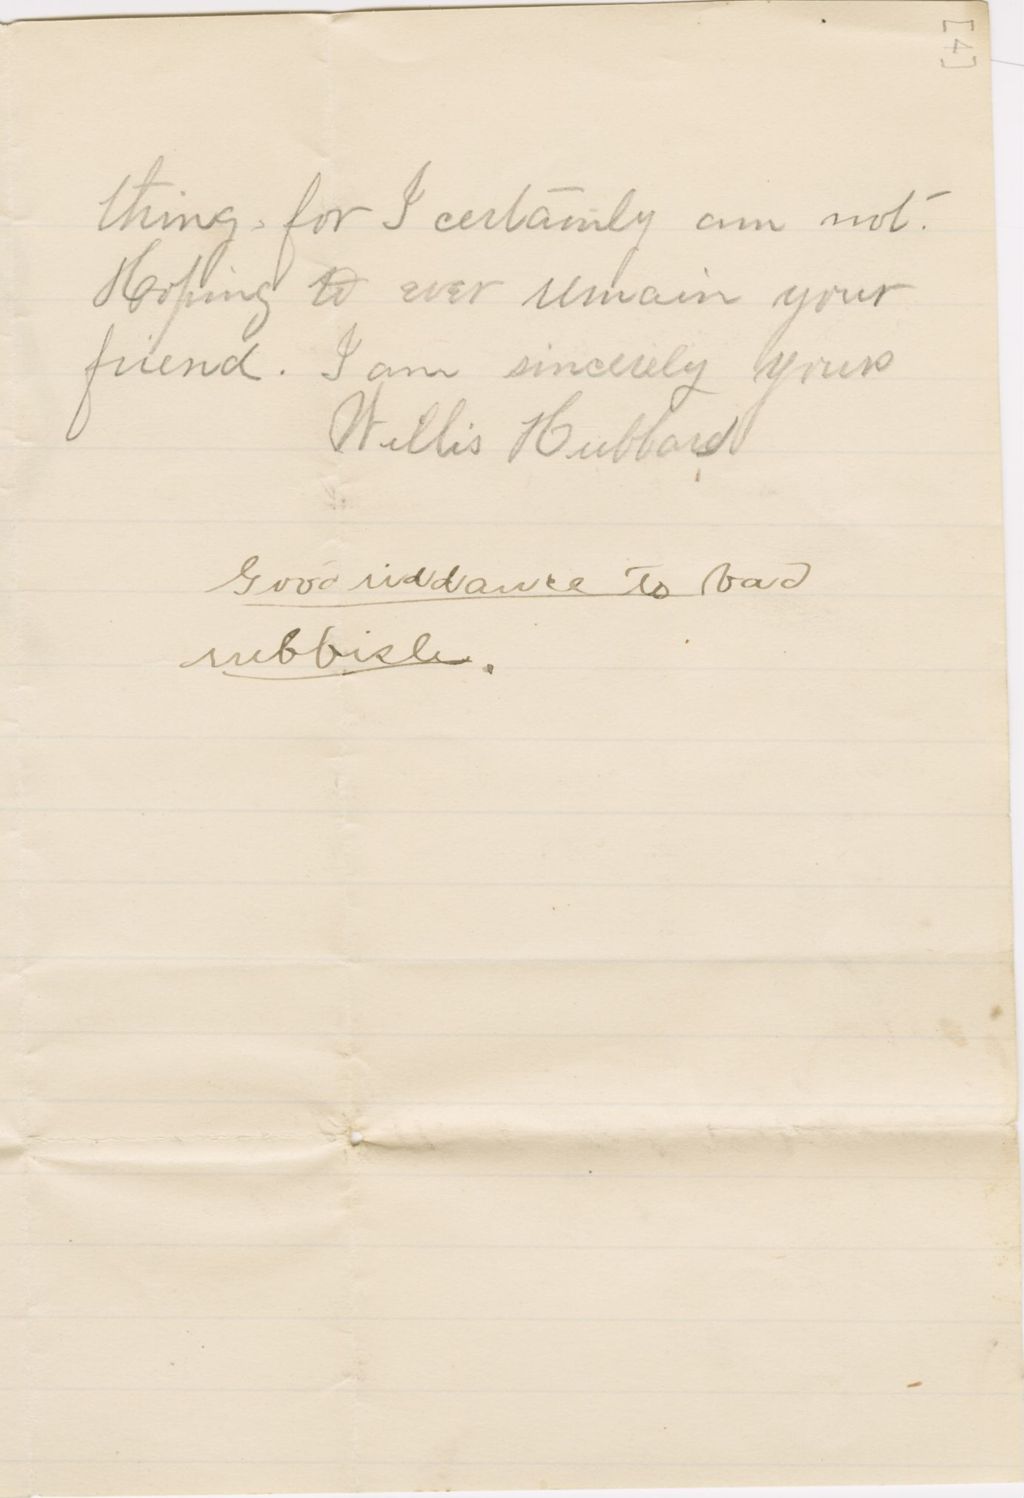 [4]
thing. for I certainly am not.
Hoping to ever remain your
friend. I am sincerely yours
Willis Hubbard
Good riddance to bad
rubbish.